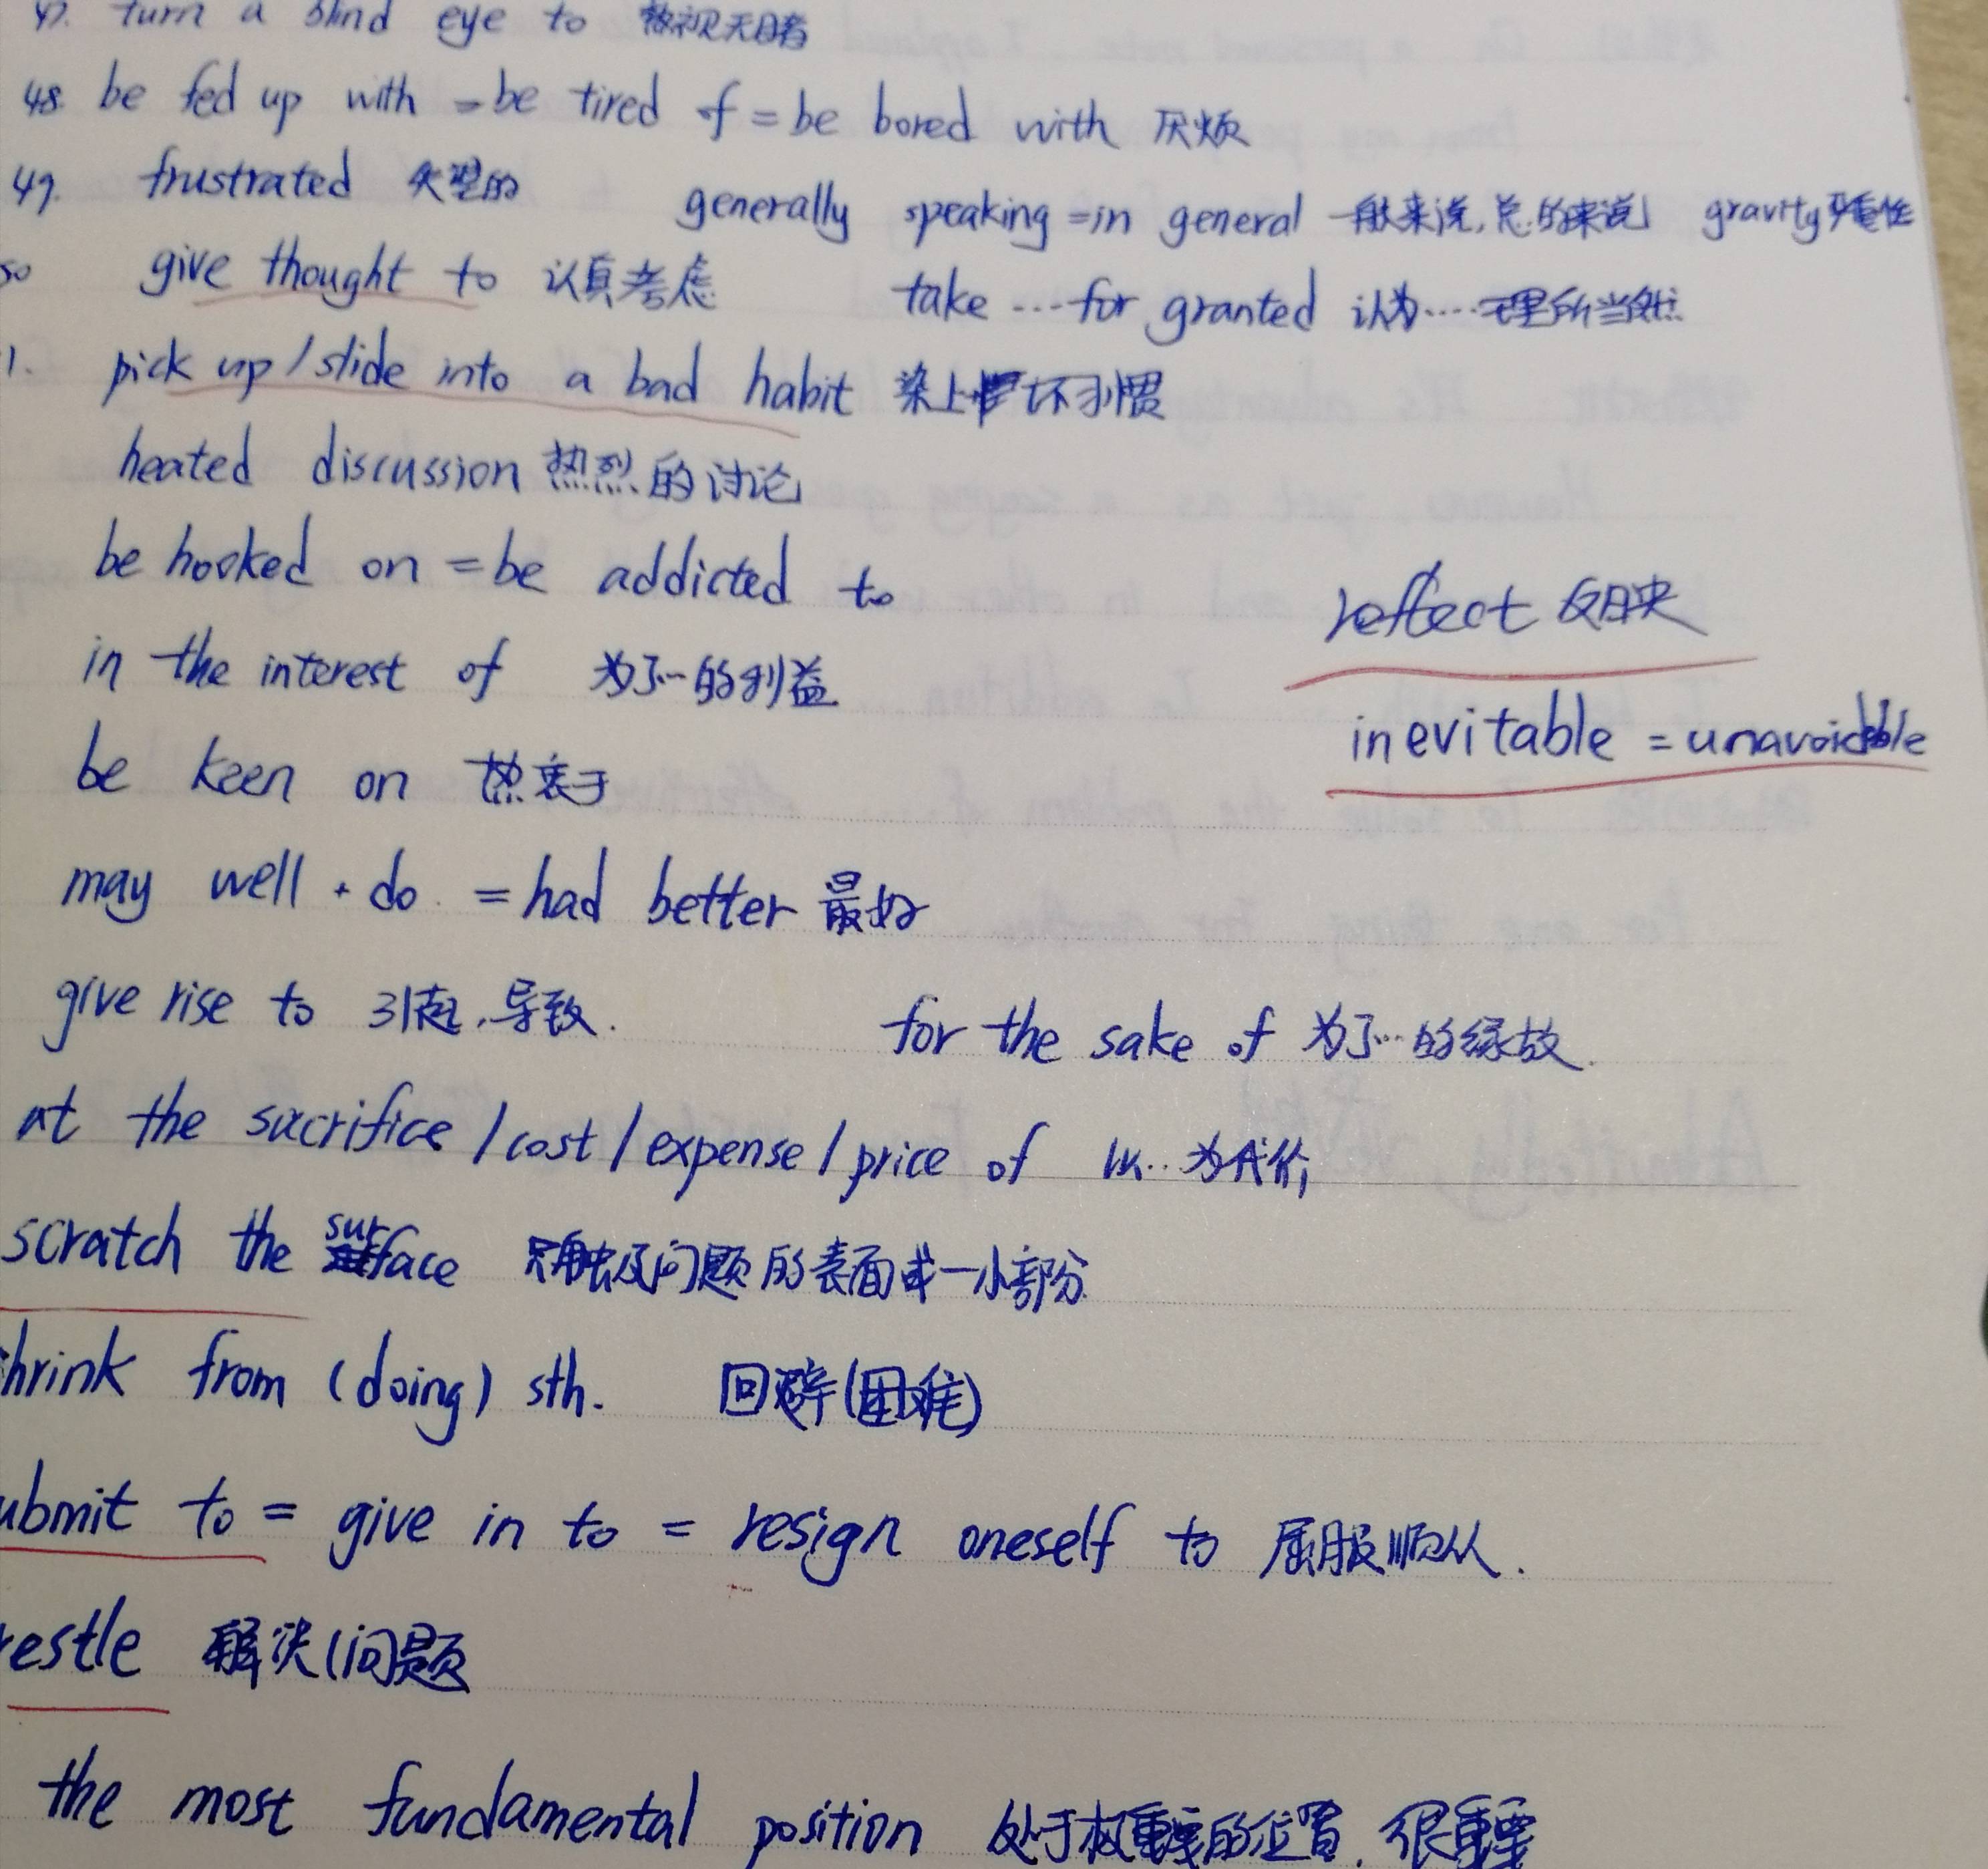 47. turn a blind eye to 熟视无睹
48. be fed up with = be tired of = be bored with 厌烦
49. frustrated 失望的 generally speaking = in general 一般来说,总的来说 gravity 严重性
50 give thought to 认真考虑 take ... for granted 认为……理所当然
1. pick up / slide into a bad habit 染上坏习惯
heated discussion 热烈的讨论
be hooked on = be addicted to
reflect 反映
in the interest of 为了…的利益
inevitable = unavoidable
be keen on 热衷于
may well + do = had better 最好
give rise to 引起,导致. for the sake of 为了…的缘故.
at the sacrifice / cost / expense / price of 以…为代价
scratch the surface 只触及问题的表面或一小部分
hrink from (doing) sth. 回避(困难)
ubmit to = give in to = resign oneself to 屈服顺从.
restle 解决(问题
the most fundamental position 处于权重要的位置. 很重要